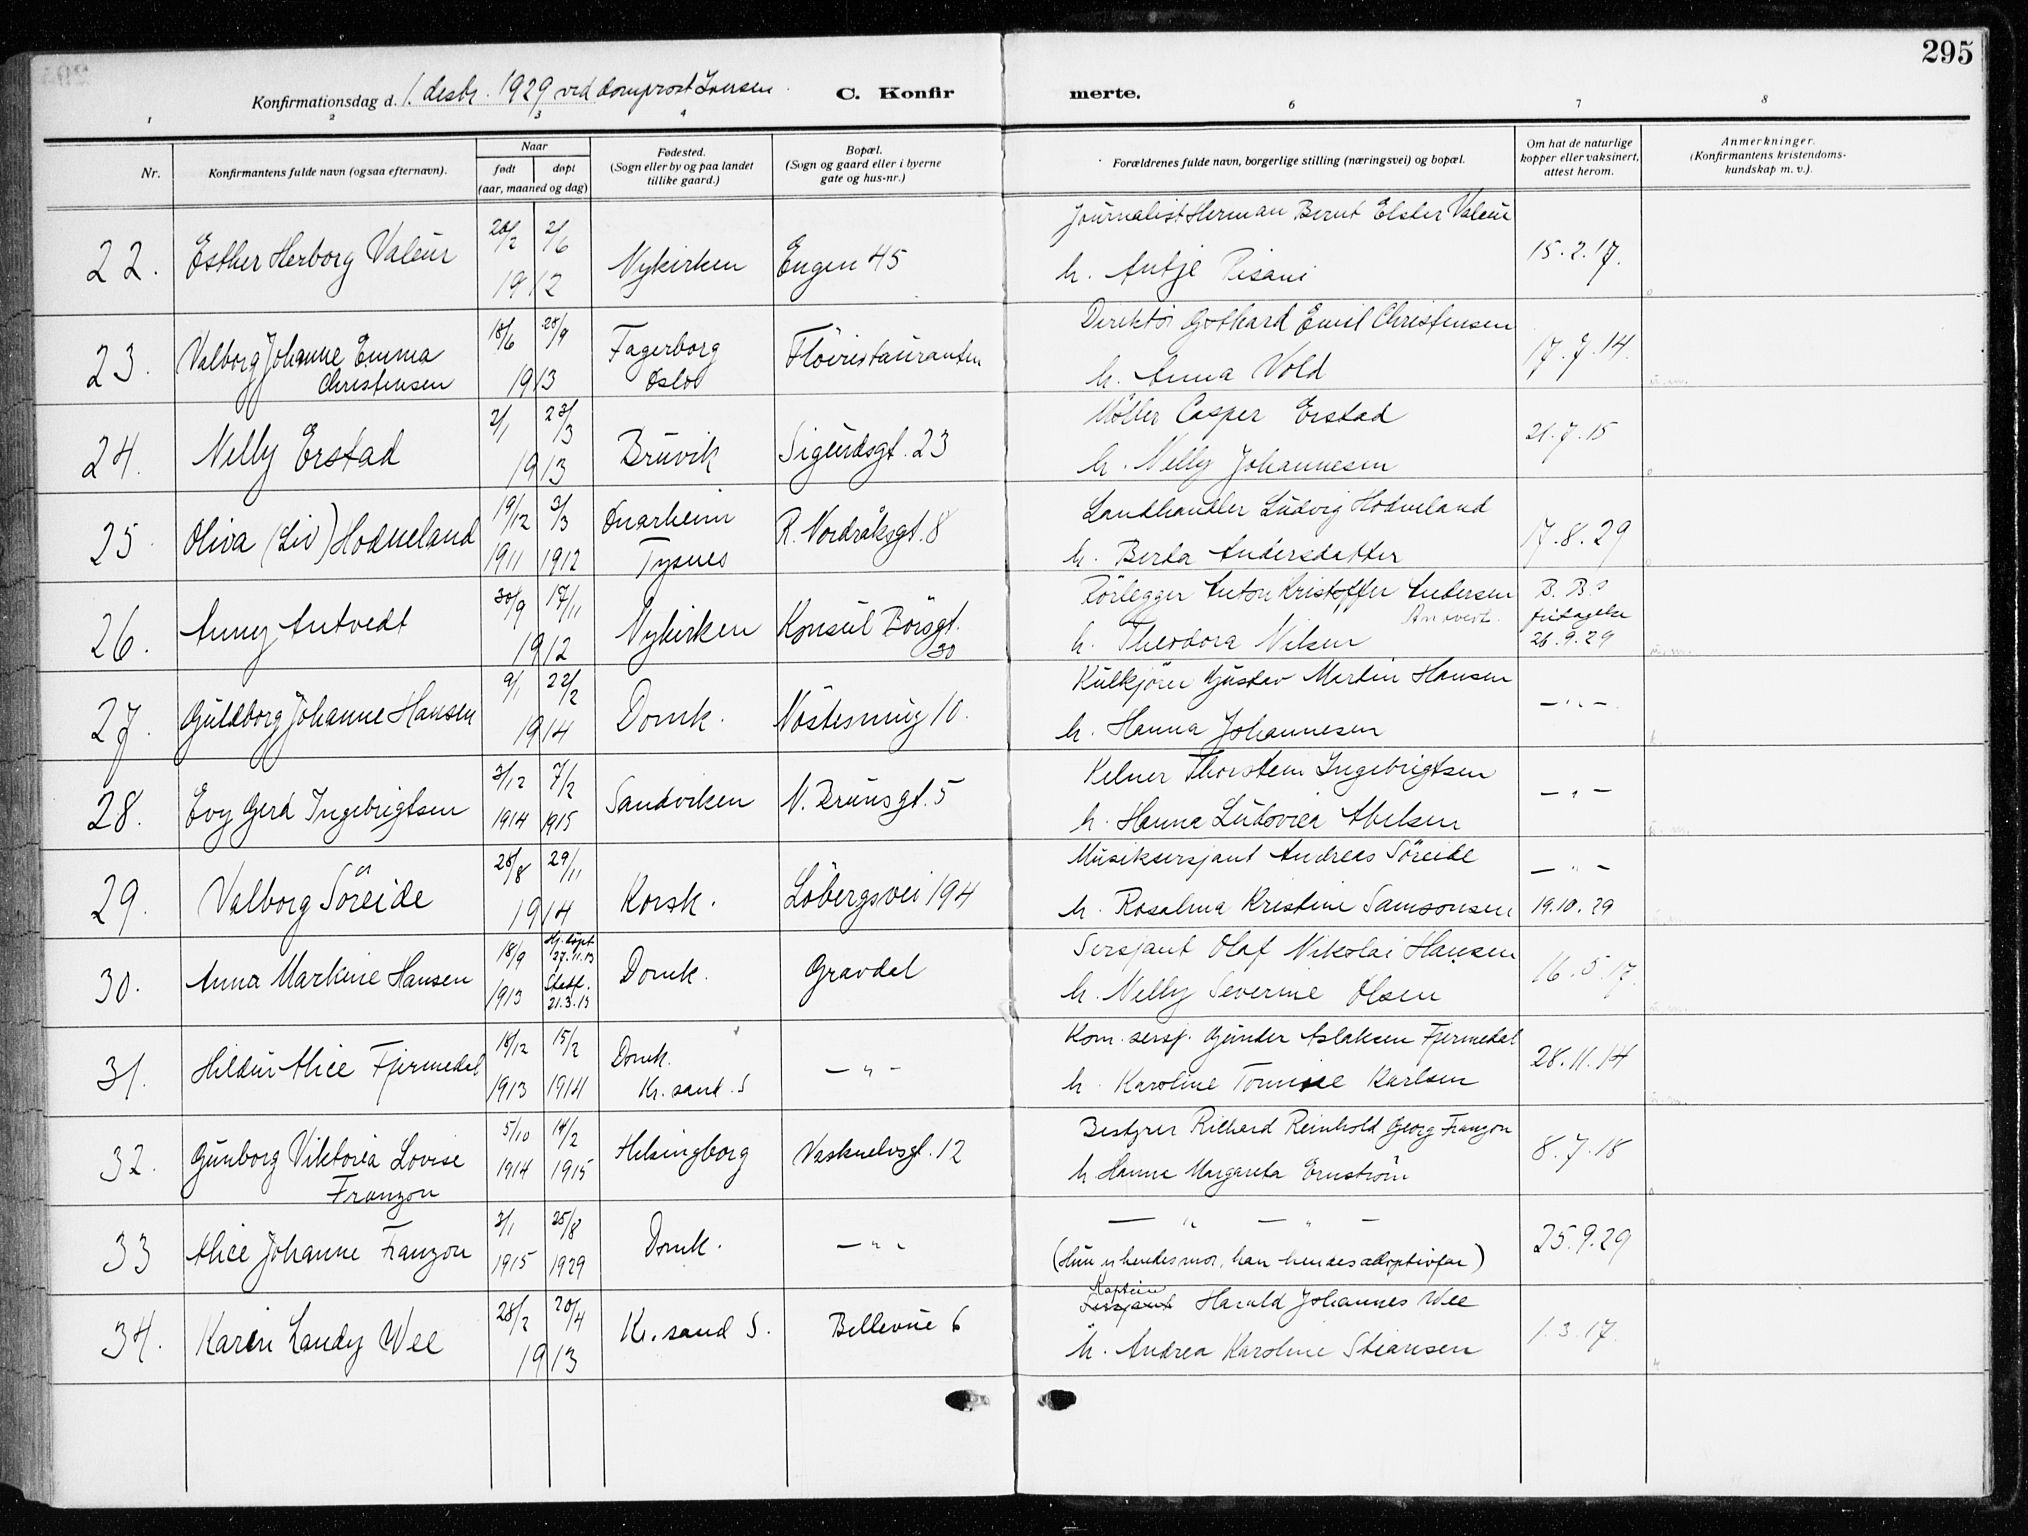 295
Konfirmationsdag d. 1. desbr. 1929 ved domprost C. Konfirmerte.
1 2 3 4 6 7 8
Nr. Konfirmantens fulde navn (ogsaa efternavn). Naar født døpt (aar, maaned og dag) Fødested. (Sogn eller by og paa landet tillike gaard.) Bopæl. (Sogn og gaard eller i byerne gate og hus-nr.) Forældrenes fulde navn, borgerlige stilling (næringsvei) og bopæl. Om hat de naturlige kopper eller vaksinert, attest herom. Anmerkninger. (Konfirmantens kristendoms-kundskap m. v.).
22. Esther Herborg Valeur 20/2 2/6 1912 Nykirken Engen 45 Journalist Herman Bernt Elster Valeur
h. Antje Pisani 15.2.17.
23. Valborg Johanne Emma Christensen 18/6 28/9 1913 Fagerborg Oslo Fløirestauranten Direktør Gothard Emil Christensen
h. Anna Vold 17.7.14.
24. Nelly Erstad 2/1 23/3 1913 Bruvik Sigurdsgt. 23 Møller Casper Erstad
h. Nelly Johannesen 21.7.15
25. Oliva (Liv) Hodneland 19/12 1911 3/3 1912 Onarheim Tysnes R. Nordråksgt. 8 Landhandler Ludvig Hodneland
h. Berta Andersdatter 17.8.29
26. Anny Antvedt 30/9 17/11 1912 Nykirken Konsul Börsgt. 30 Rörlegger Anton Kristoffer Andersen Antvedt
h. Theodora Nilsen B. B.s fritagelse 26.9.29
27. Guldborg Johanne Hansen 9/1 22/2 1914 Domk. Nöstesmug 10. Kulkjörer Gustav Martin Hansen
h. Hanna Johannesen — " —
28. Evy Gerd Ingebrigtsen 3/12 1914 7/2 1915 Sandviken N. Brunsgt. 5 Kelner Thorstein Ingebrigtsen
h. Hanna Ludovica Abelsen — " —
29. Valborg Söreide 28/8 29/11 1914 Korsk. Löbergsvei 194 Musiksersjant Andreas Söreide
h. Rosalina Kristine Samsonsen — " — 19.10.29
30. Anna Markine Hansen 18/9 1913 Hj. döpt 27.11.13 Stadf. 21.3.15 Domk. Gravdal Sersjant Olaf Nikolai Hansen
h. Nelly Severine Olsen 16.5.17.
31. Hildur Alice Fjermedal 18/12 1913 15/2 1914 Domk. Kr. sand. S — " — Kom. sersj. Gunder Aslaksen Fjermedal
h. Karoline Tomine Karlsen 28.11.14
32. Gunborg Viktoria Lovise Franzon 5/10 1914 14/2 1915 Helsingborg Vaskerelvsgt. 12 Bestyrer Richard Reinhold Georg Franzon
h. Hanna Margareta Ernström 8.7.18
33 Alice Johanne Franzon 3/1 1915 25/8 1929 Domk. — " — — " — " —
(Hun er hendes mor, han hendes adoptivfar) 25.9.29
34. Karin Landy Wee 28/2 20/4 1913 Kr. sand S. Bellevue 6 Kaptein Sersjant Harald Johannes Wee
h. Andrea Karoline Stiansen 1.3.17.